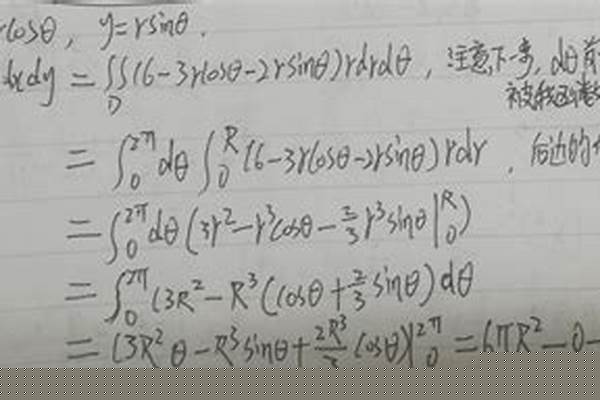 rcosθ, y=rsinθ.
dxdy = ∬_D (6-3rcosθ-2rsinθ)rdrdθ, 注意下一步, dθ前
被我
= ∫_0^{2π} dθ ∫_0^R (6-3rcosθ-2rsinθ)rdr, 后边的
= ∫_0^{2π} dθ (3r²-r³cosθ-\frac{2}{3}r³sinθ|_0^R)
= ∫_0^{2π} (3R²-R³(cosθ+\frac{2}{3}sinθ)dθ
= (3R²θ-R³sinθ+\frac{2R³}{3}cosθ)|_0^{2π} = 6πR²-0-